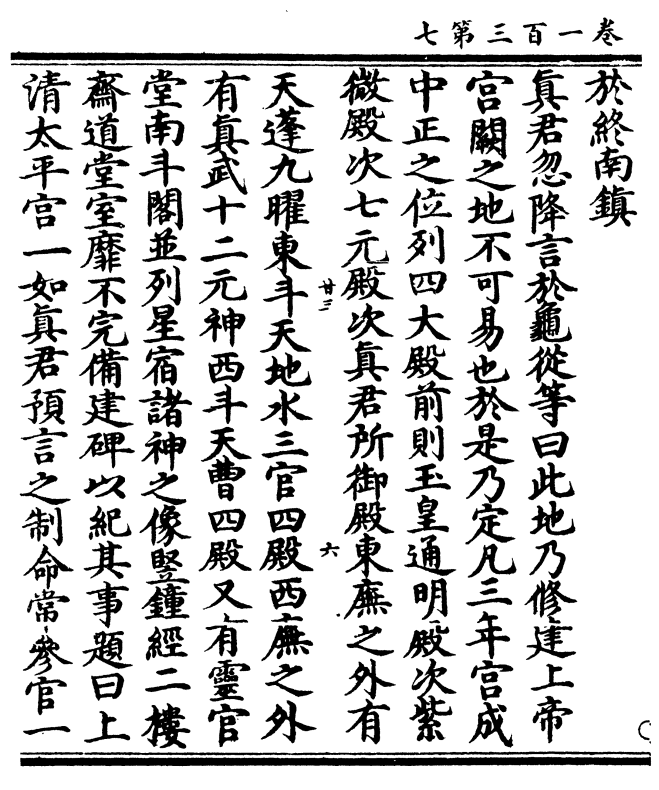 卷一百三第七
於終南鎮
真君忽降言於龜從等曰此地乃修建上帝
宮闕之地不可易也於是乃定凡三年宮成
中正之位列四大殿前則玉皇通明殿次紫
微殿次七元殿次真君所御殿東廡之外有
廿三
六
天蓬九曜東斗天地水三官四殿西廡之外
有真武十二元神西斗天曹四殿又有靈官
堂南斗閣並列星宿諸神之像竪鐘經二樓
齋道堂室靡不完備建碑以紀其事題曰上
清太平宮一如真君預言之制命常參官一